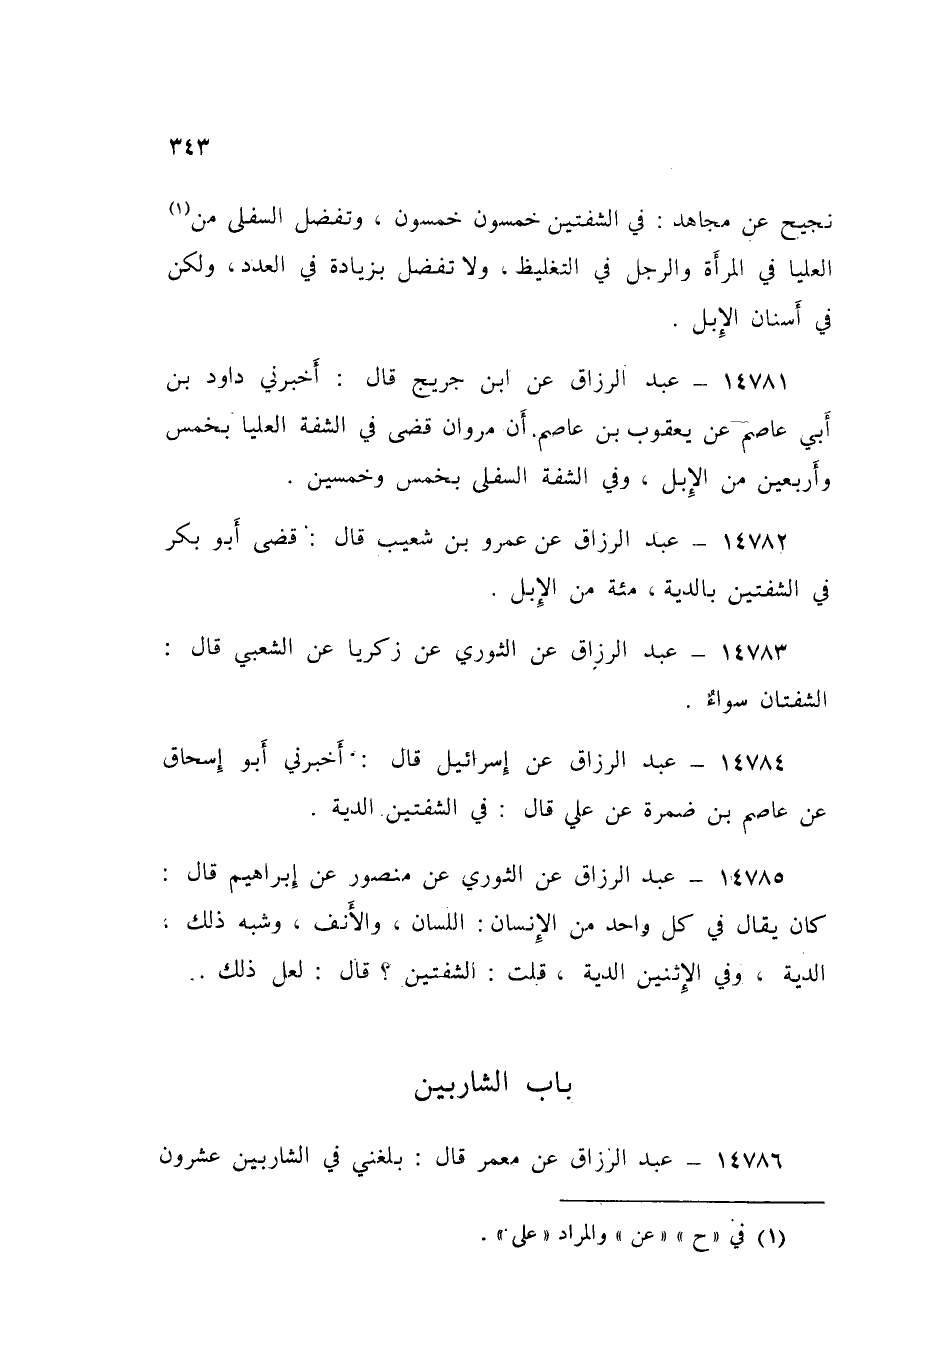 ٣٤٣
نجيح عن مجاهد : في الشفتين خمسون خمسون ، وتفضل السفلى من(١)
العليا في المرأة والرجل في التغليظ ، ولا تفضل بزيادة في العدد ، ولكن
في أسنان الإبل .
١٤٧٨١ – عبد الرزاق عن ابن جريج قال : أخبرني داود بن
أبي عاصم عن يعقوب بن عاصم أن مروان قضى في الشفة العليا بخمس
وأربعين من الإبل ، وفي الشفة السفلى بخمس وخمسين .
١٤٧٨٢ – عبد الرزاق عن عمرو بن شعيب قال : قضى أبو بكر
في الشفتين بالدية ، مئة من الإبل .
١٤٧٨٣ – عبد الرزاق عن الثوري عن زكريا عن الشعبي قال :
الشفتان سواءٌ .
١٤٧٨٤ – عبد الرزاق عن إسرائيل قال : أخبرني أبو إسحاق
عن عاصم بن ضمرة عن علي قال : في الشفتين الدية .
١٤٧٨٥ – عبد الرزاق عن الثوري عن منصور عن إبراهيم قال :
كان يقال في كل واحد من الإنسان : اللسان ، والأنف ، وشبه ذلك ،
الدية ، وفي الإثنين الدية ، قلت : الشفتين ؟ قال : لعل ذلك ..
باب الشاربين
١٤٧٨٦ – عبد الرزاق عن معمر قال : بلغني في الشاربين عشرون
(١) في «ح» «عن» والمراد «على» .